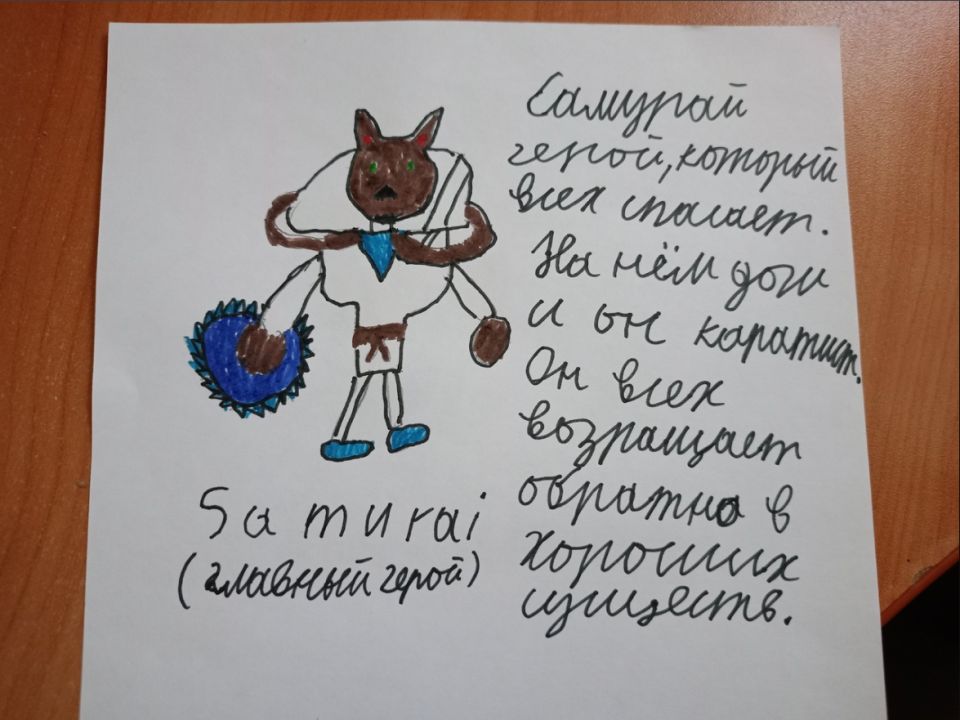 Samurai
(главный герой)
Самурай
герой, который
всех спасает.
На нём доги
и он каратист.
Он всех
возращает
обратно в
хороших
существ.